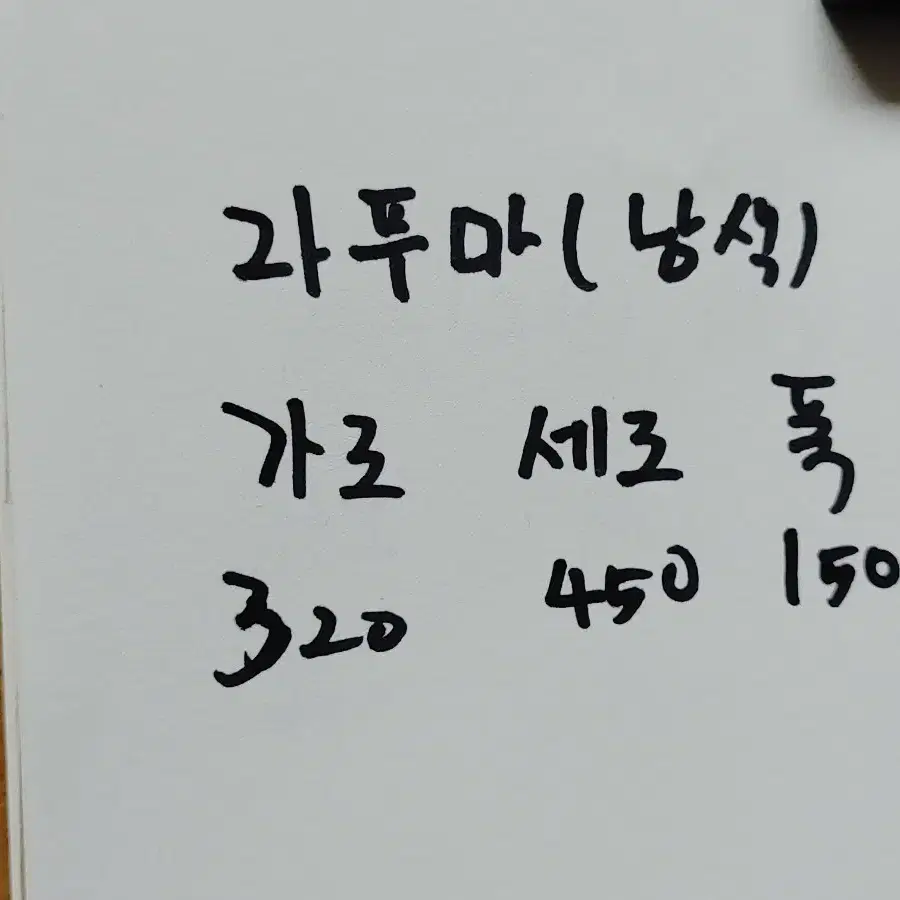 라푸마(낭색)
가로 세로 폭
320 450 150